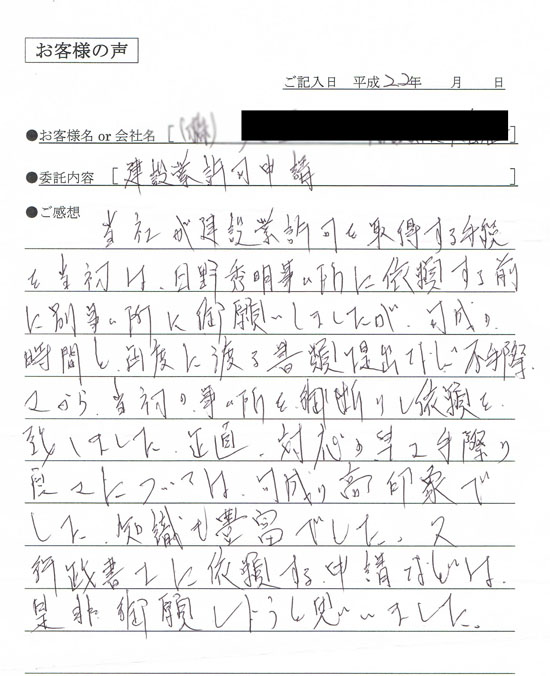 お客様の声
ご記入日 平成22年 月 日
●お客様名 or 会社名 [(株) ]
●委託内容 [建設業許可申請 ]
●ご感想
当社が建設業許可を取得する手続
を当初は、日野秀明事ム所に依頼する前
に別事ム所に御願いしましたが、可成り
時間も、再度に渡る書類提出など不手際
さから、当初の事ム所を御断りし依頼を
致しました。正直、対応の早さ手際の
良さについては、可成り高印象で
した。知識も豊富でした。又
行政書士に依頼する申請などは、
是非御願しようと思いました。